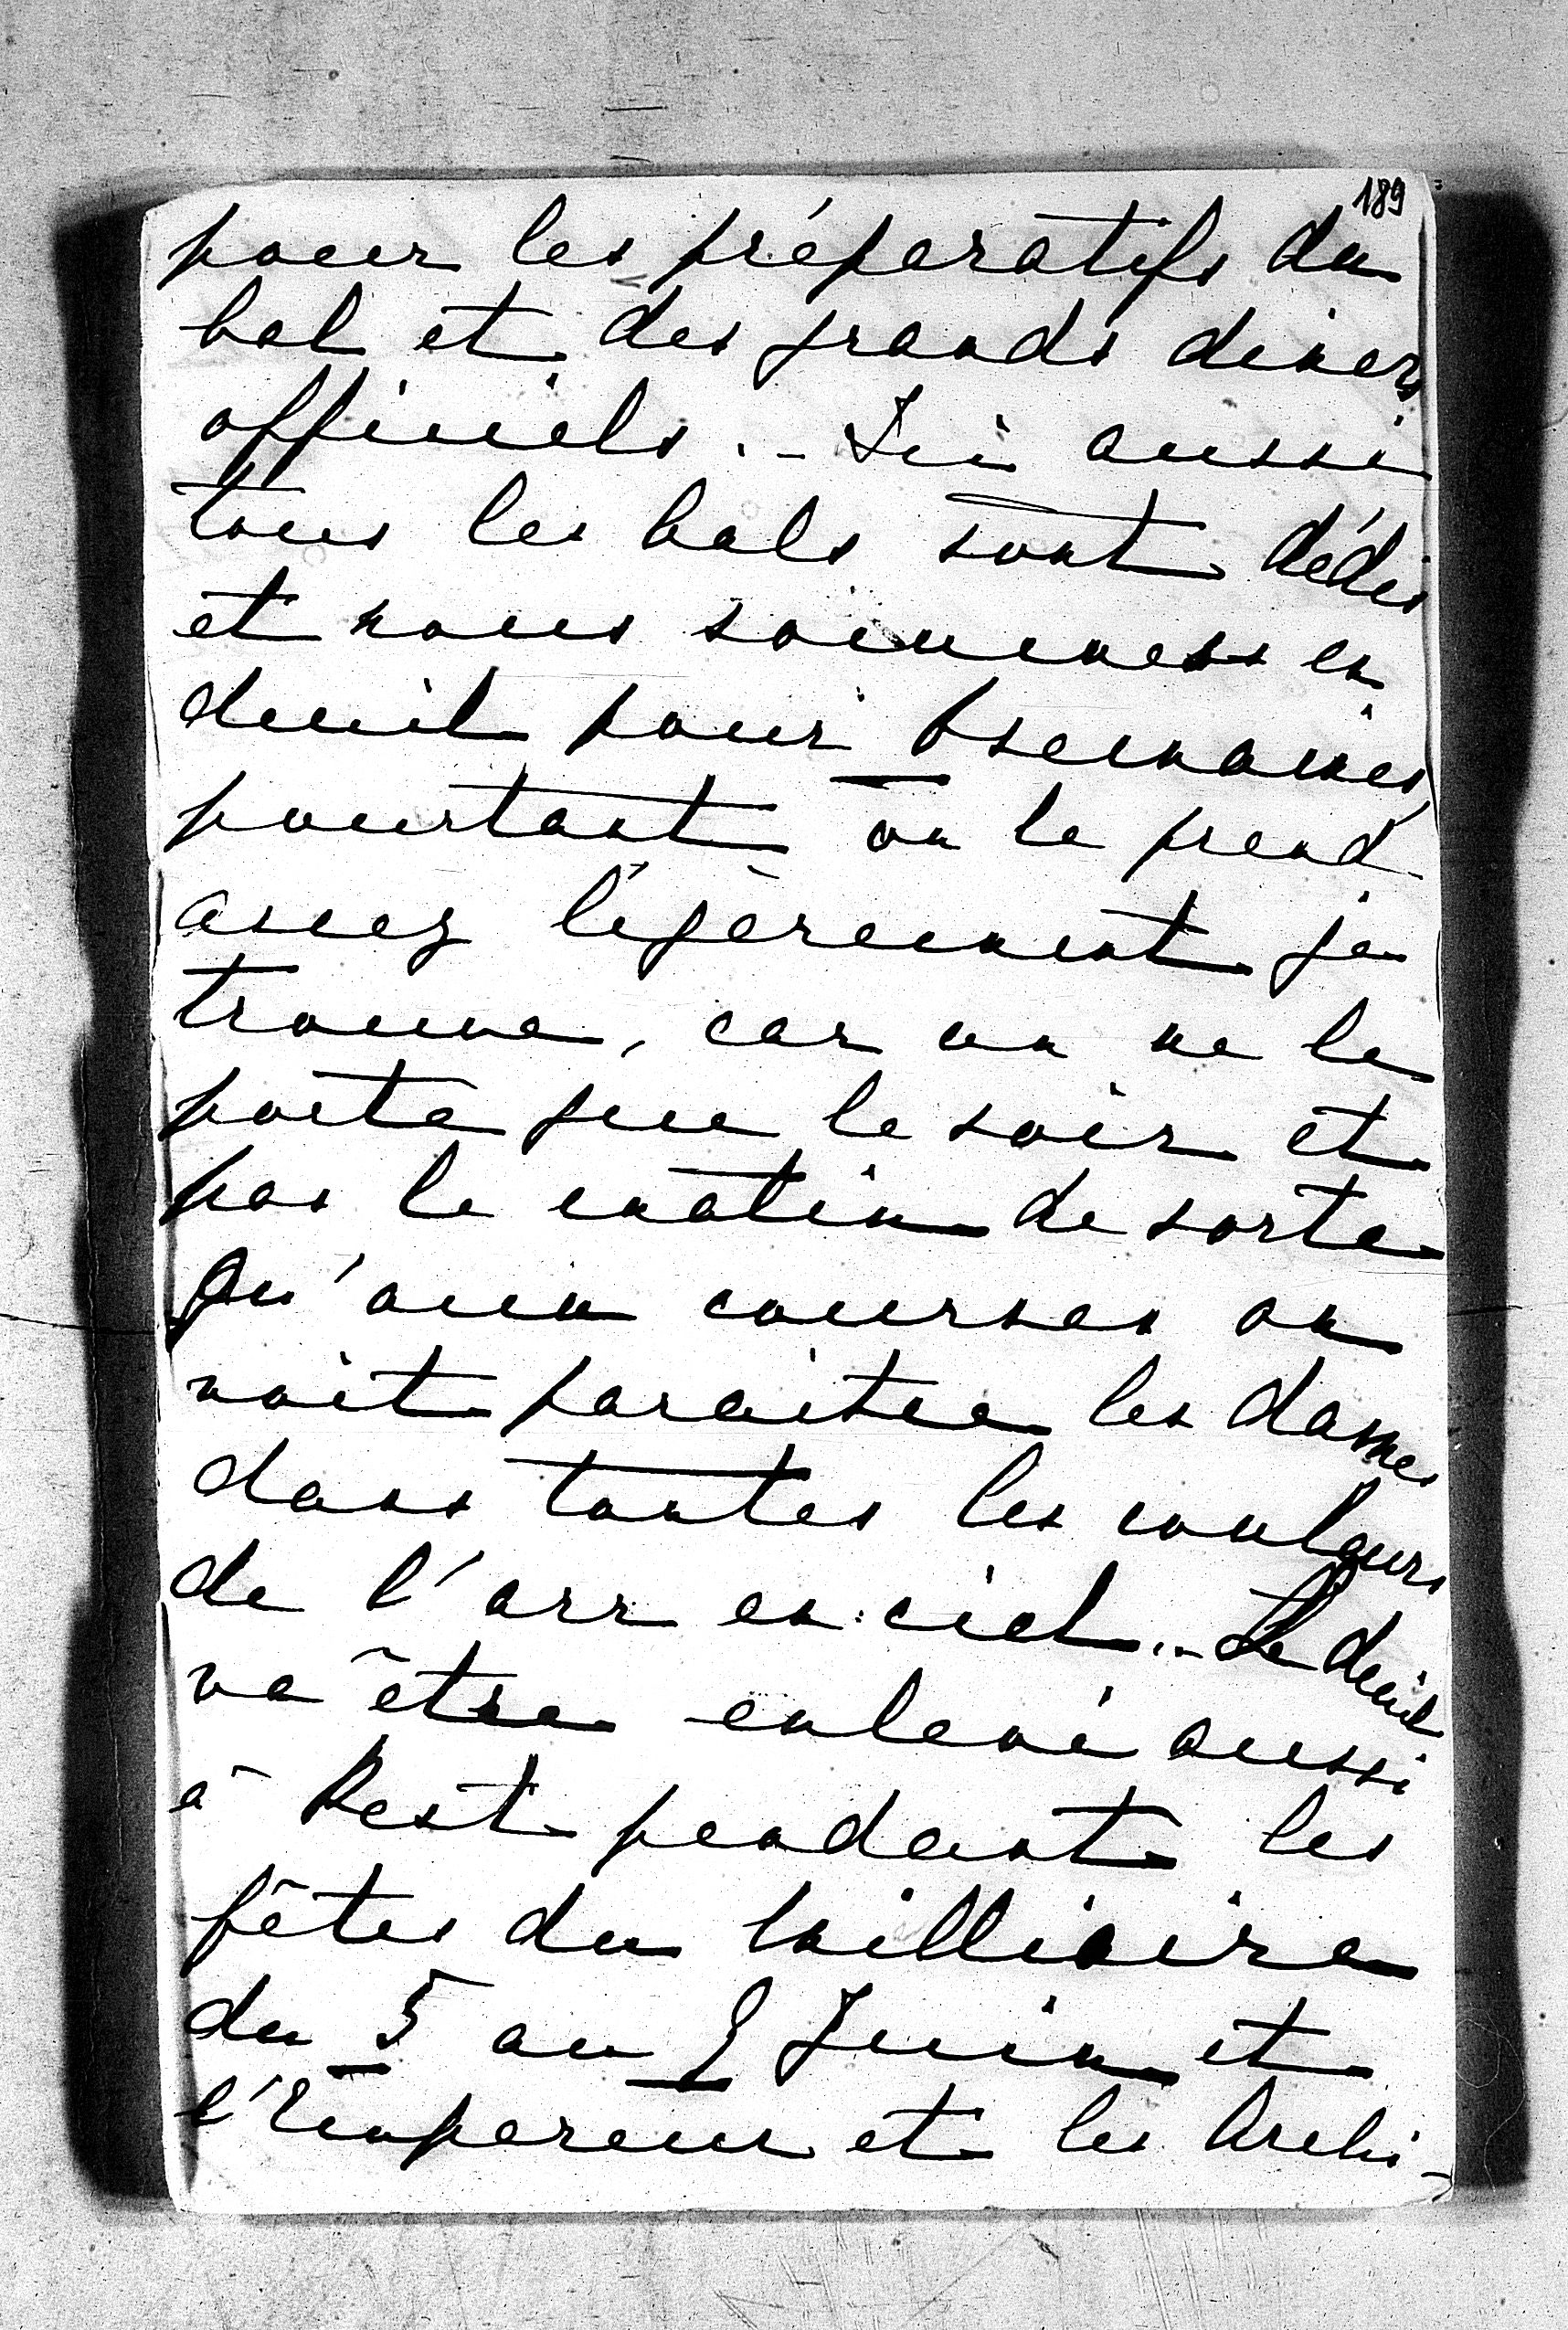 189
pour les préparatifs du
bal et des grands diners
officiels. – Ici aussi
tous les bals sont dédis
et nous sommes en
deuil pour 6 semaines
pourtant on le prend
assez légèrement je
trouve, car on ne le
porte que le soir et
pas le matin de sorte
qu'aux courses on
voit paraitre les dames
dans toutes les couleurs
de l'arr en ciel. – Le deuil
va être enlevé aussi
à Pest pendant les
fêtes du Milliaire
du 5 au 9 Juin et
l'Empereur et les Archi-